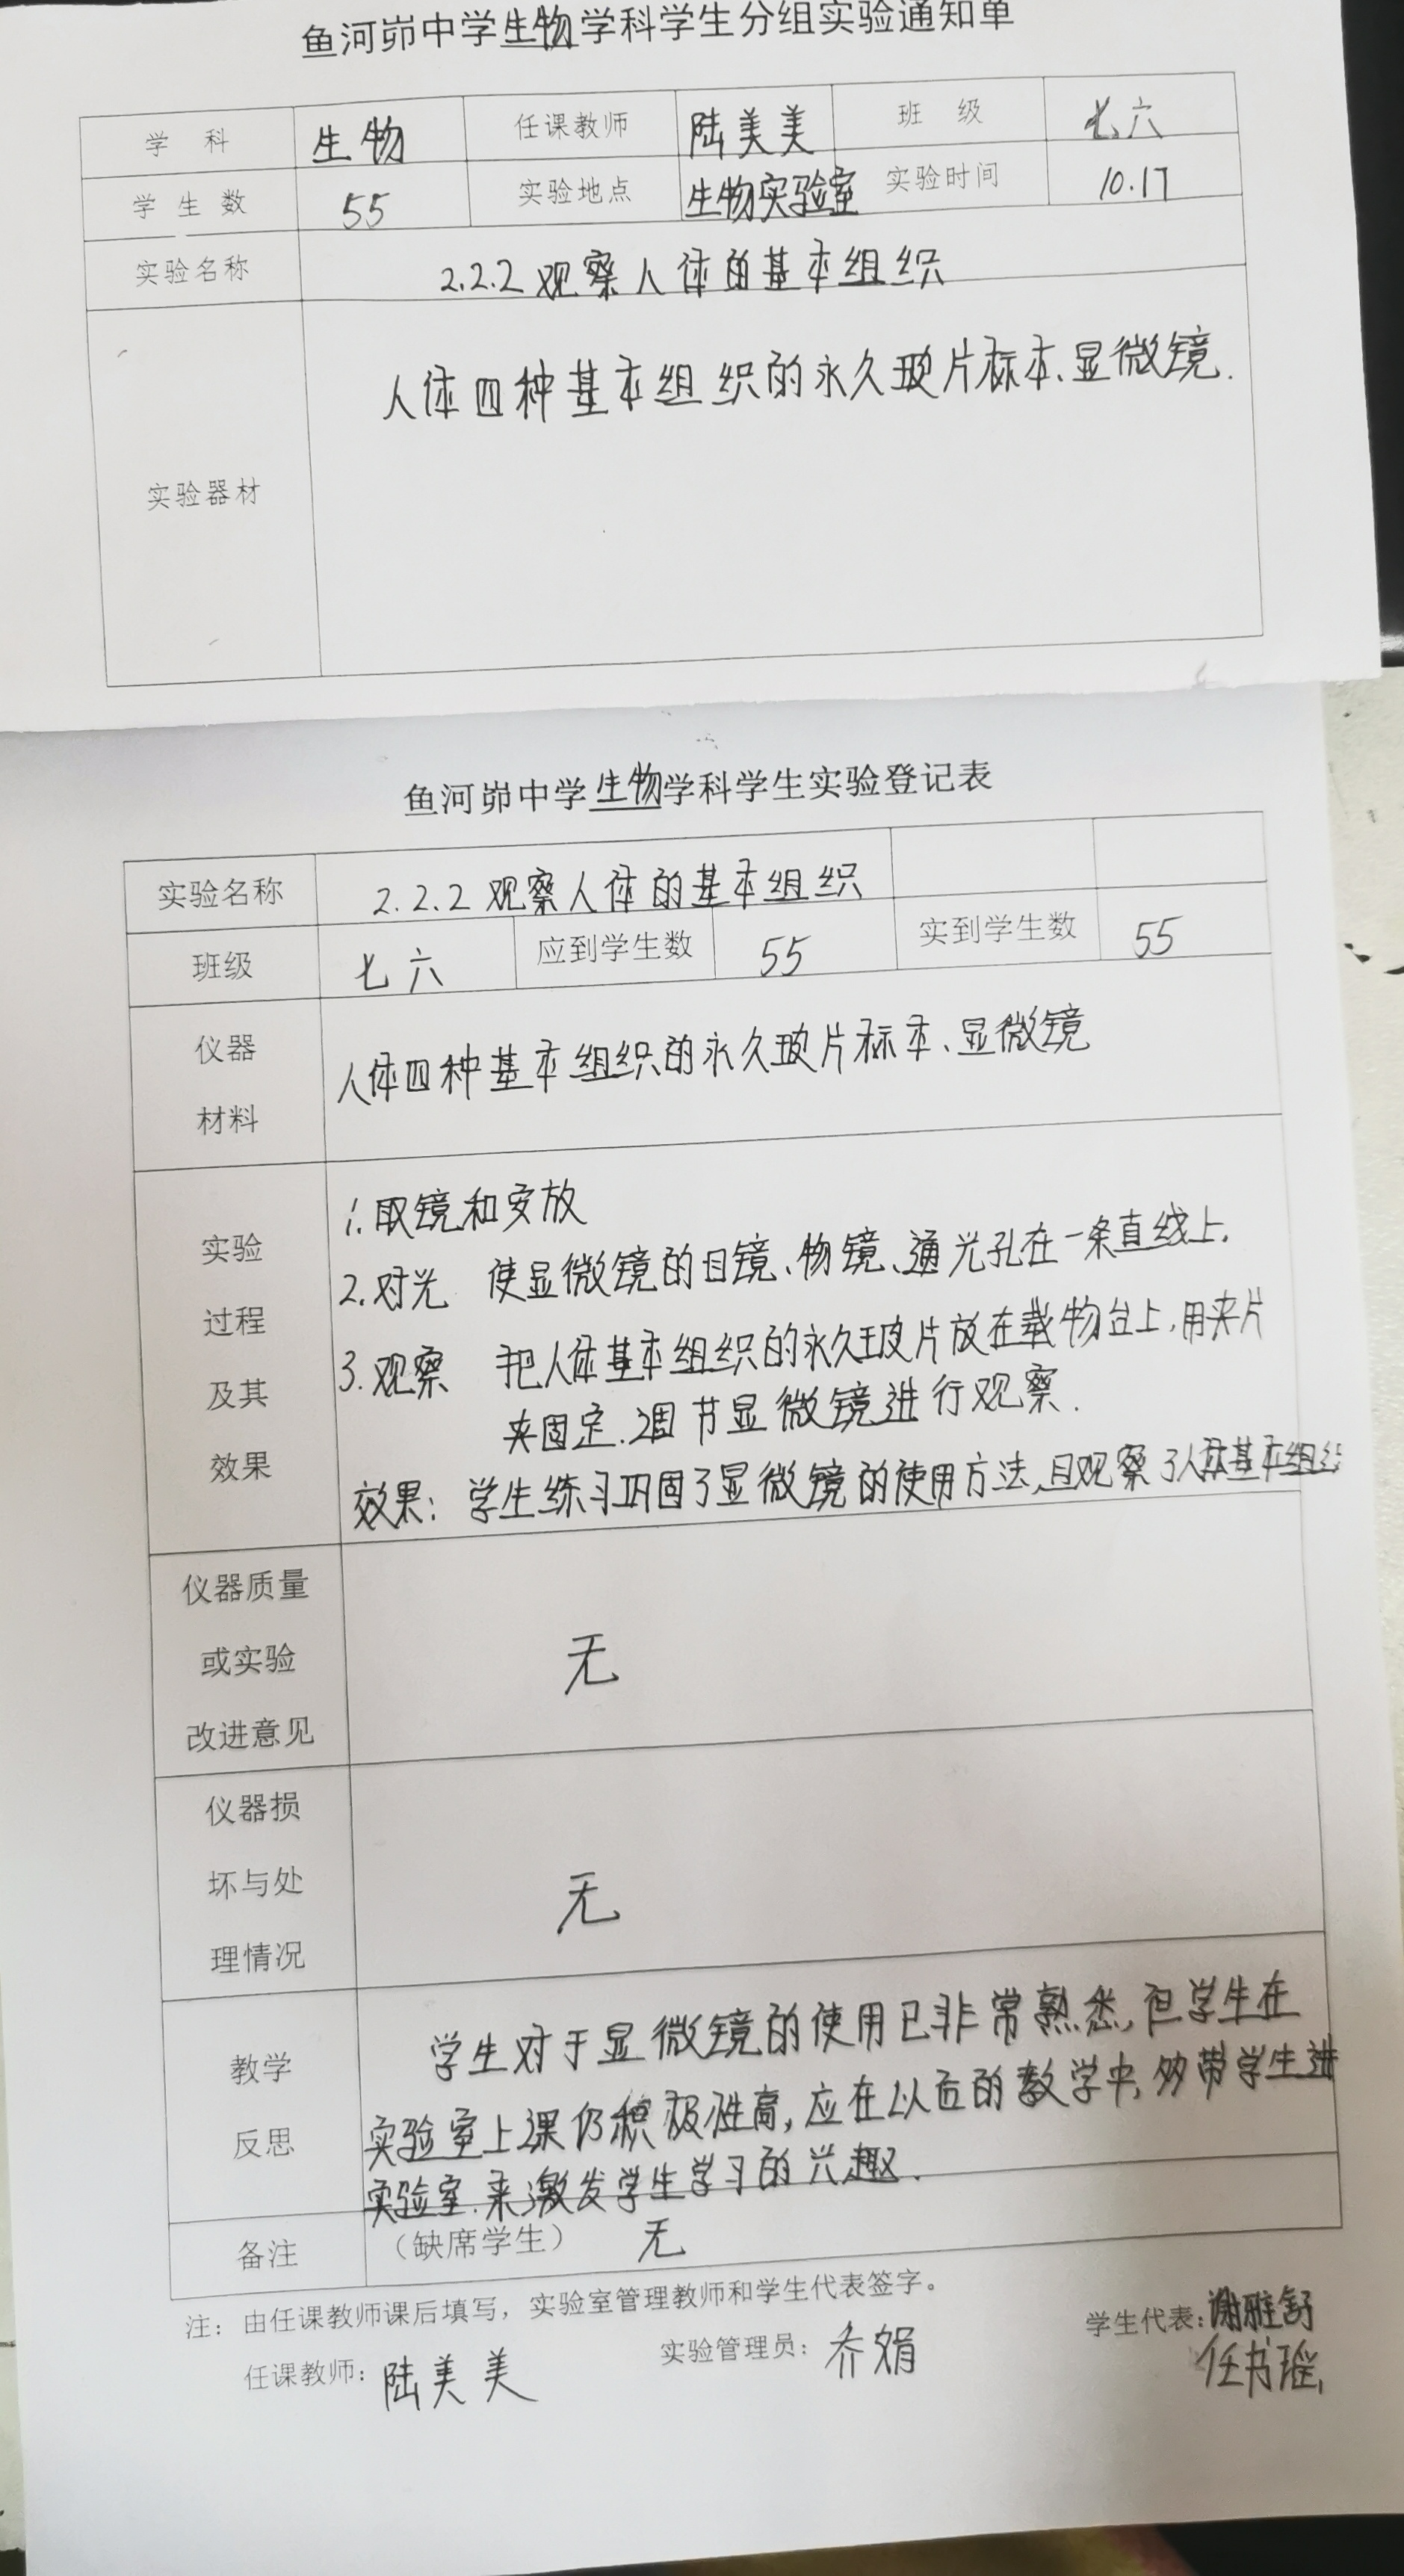 鱼河峁中学生物学科学生分组实验通知单
学 科 生物 任课教师 陆美美 班 级 七六
学生数 55 实验地点 生物实验室 实验时间 10.17
实验名称 2.2.2观察人体的基本组织
人体四种基本组织的永久玻片标本、显微镜.
实验器材
鱼河峁中学生物学科学生实验登记表
实验名称 2.2.2观察人体的基本组织
班级 七六 应到学生数 55 实到学生数 55
仪器
材料
人体四种基本组织的永久玻片标本、显微镜
实验
过程
及其
效果
1.取镜和安放
2.对光 使显微镜的目镜、物镜、通光孔在一条直线上.
3.观察 把人体基本组织的永久玻片放在载物台上,用夹片
夹固定.调节显微镜进行观察.
效果:学生练习巩固了显微镜的使用方法,且观察了人体基本组织
仪器质量
或实验
改进意见
无
仪器损
坏与处
理情况
无
教学
反思
学生对于显微镜的使用已非常熟悉,但学生在
实验室上课仍积极性高,应在以后的教学中,多带学生进
实验室.来激发学生学习的兴趣.
备注 (缺席学生) 无
注:由任课教师课后填写,实验室管理教师和学生代表签字。
任课教师:陆美美 实验管理员:乔娟 学生代表:谢雅舒
任书瑶